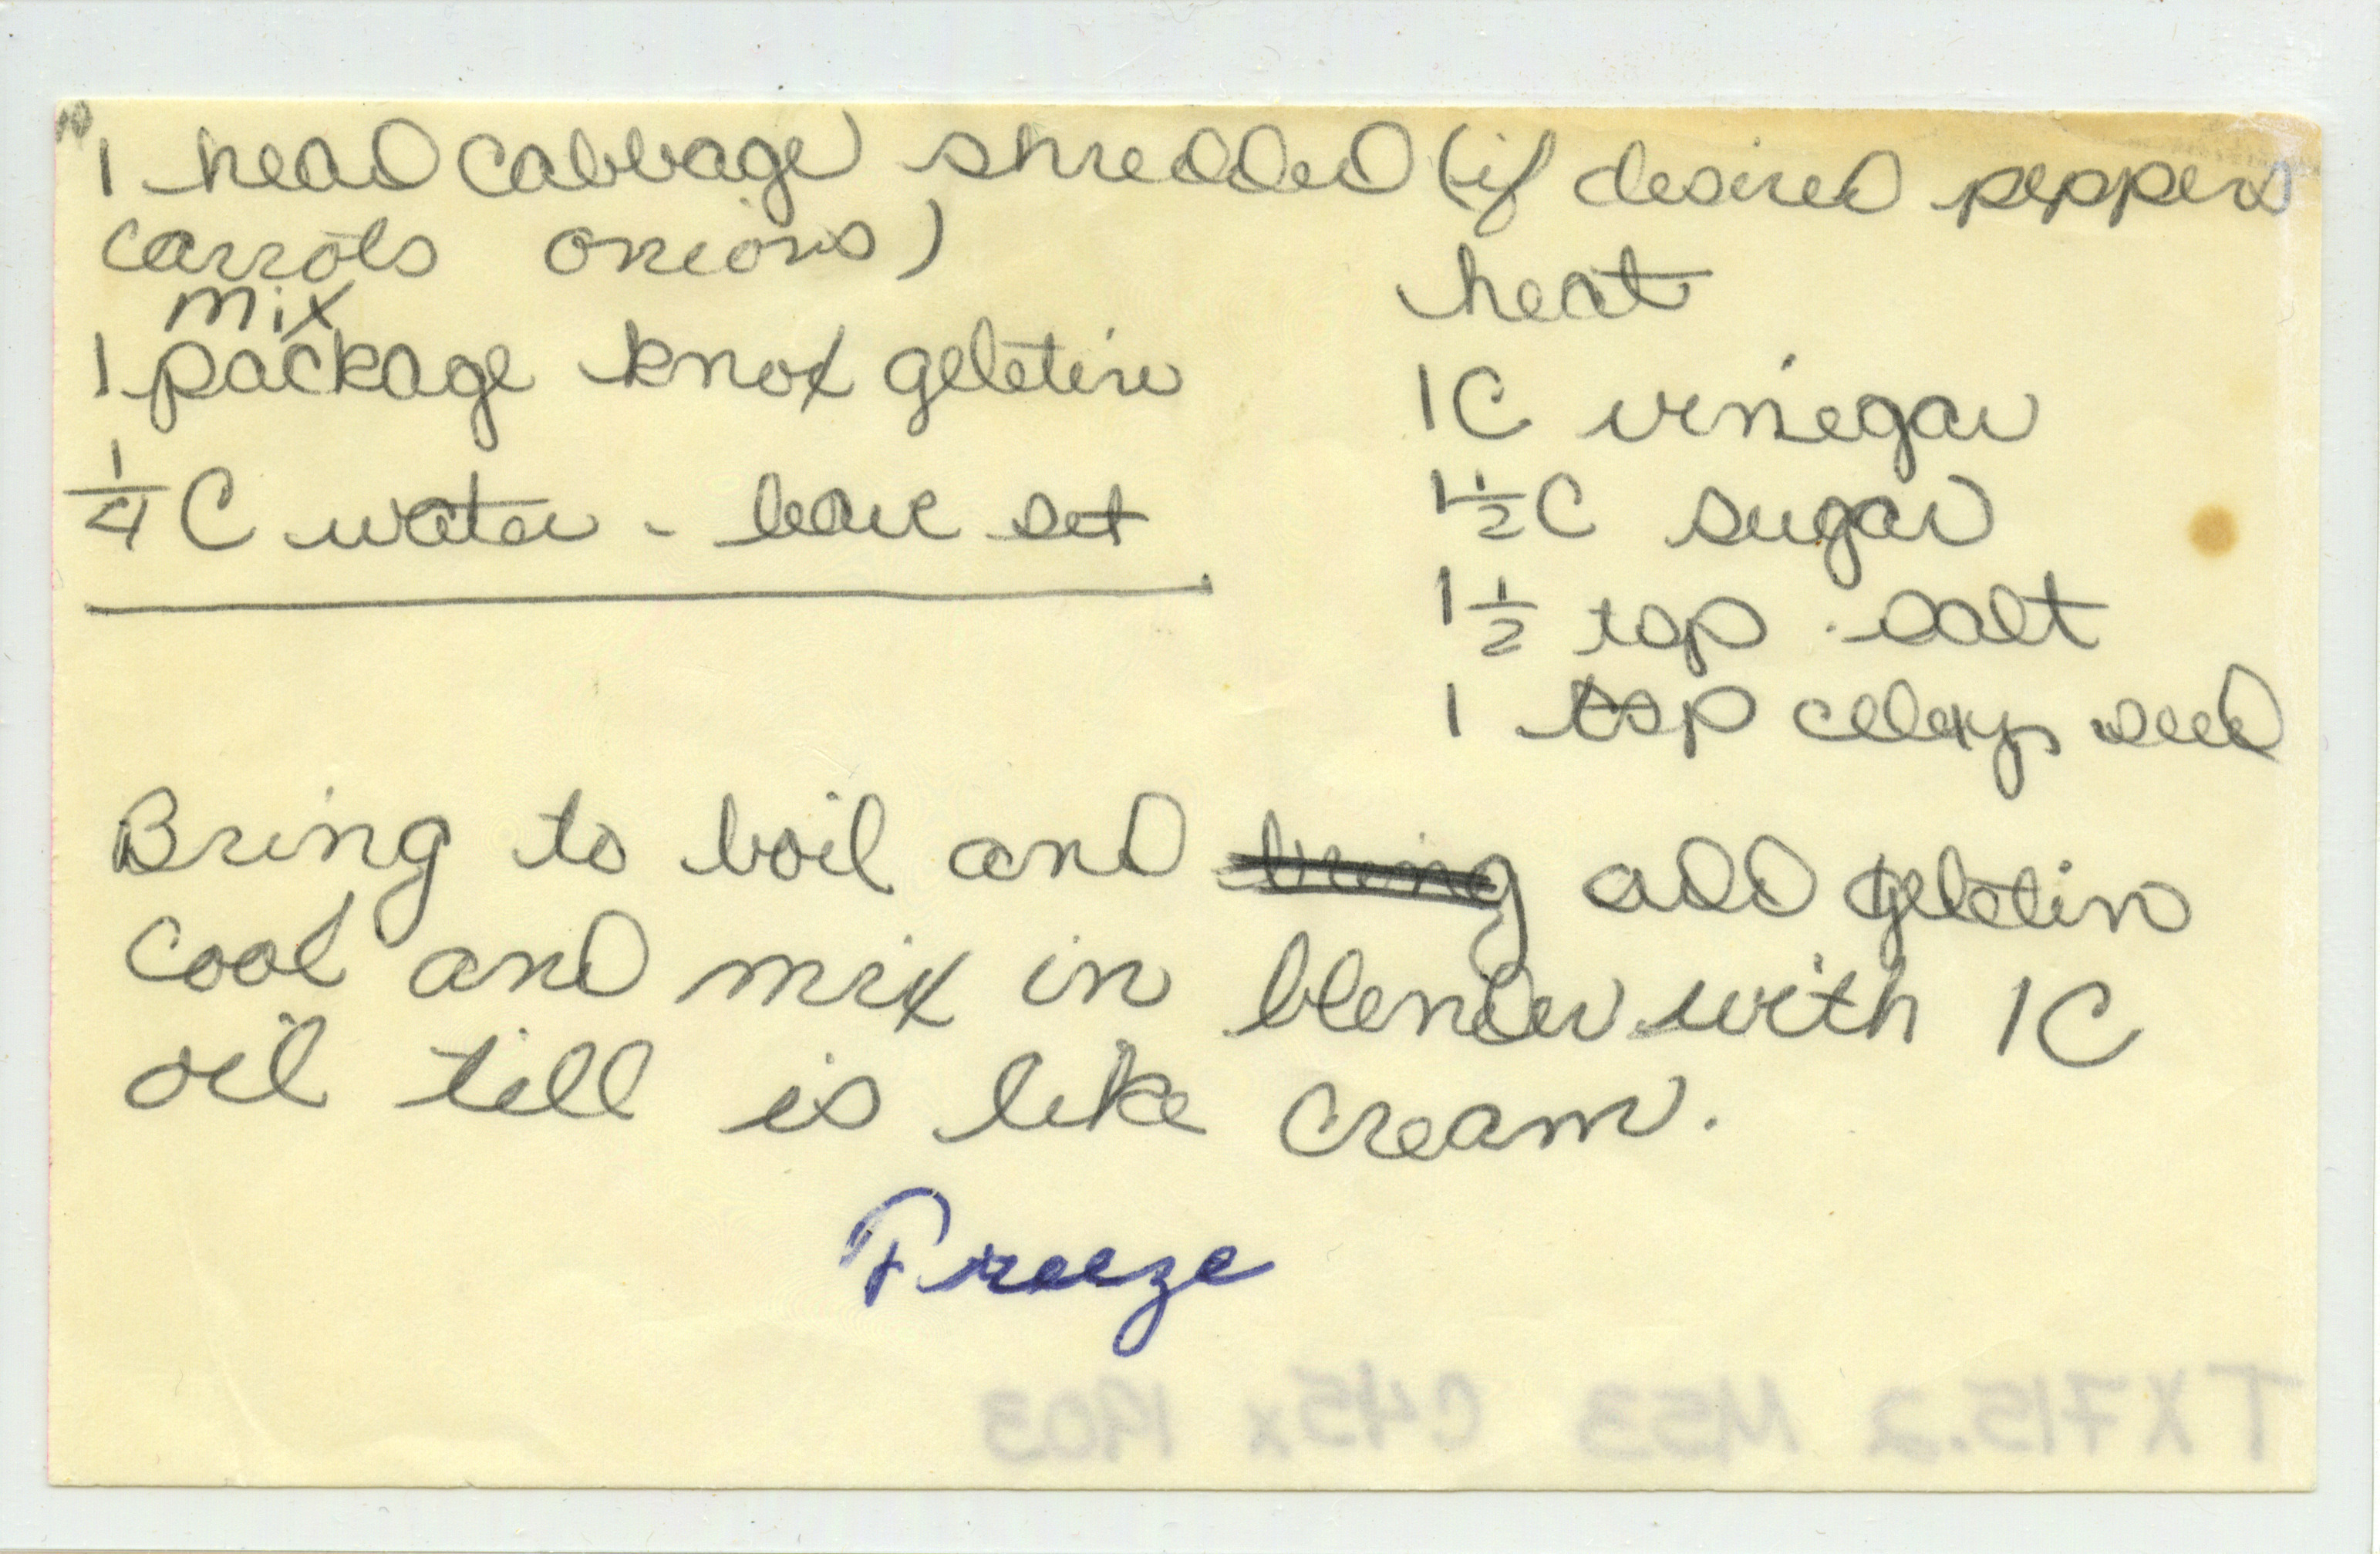 1 head cabbage shredded (if desired peppers
carrots onions)
mix
1 package knox geletin
1/4 C water - leave set
heat
1C vinegar
1 1/2 C sugar
1 1/2 tsp. salt
1 tsp celery seed
Bring to boil and bring add geletin
cool and mix in blender with 1C
oil till is like cream.
Freeze
TX715.2 M53 C45x 1903